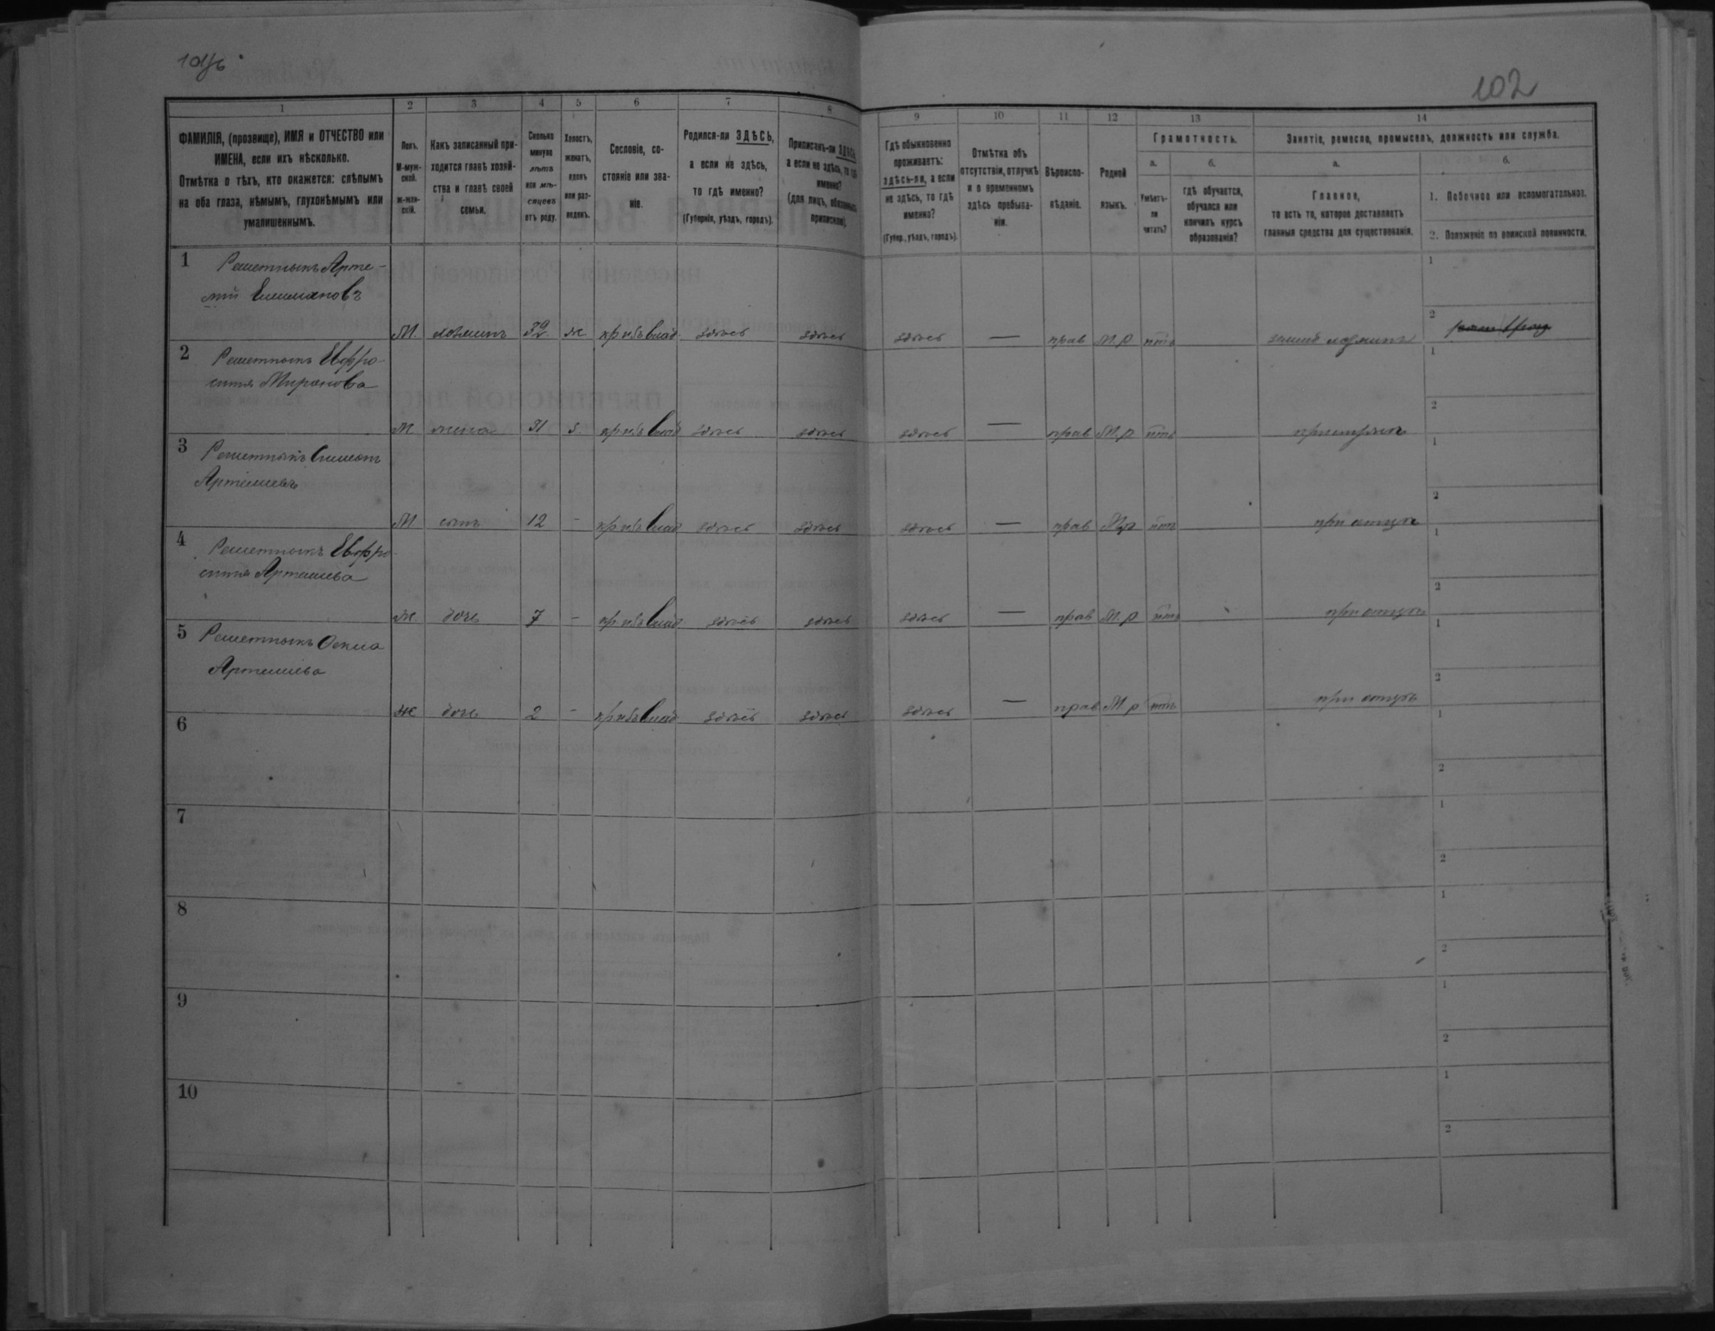 102
1 2 3 4 5 6 7 8 9 10 11 12 13 14
ФАМИЛІЯ, (прозвище), ИМЯ и ОТЧЕСТВО или
ИМЕНА, если ихъ нѣсколько.
Отмѣтка о тѣхъ, кто окажется: слѣпымъ
на оба глаза, нѣмымъ, глухонѣмымъ или
умалишеннымъ.
Полъ.
М-муж-
ской.
Ж-жен-
скій.
Какъ записанный при-
ходится главѣ хозяй-
ства и главѣ своей
семьи.
Сколько
минуло
лѣтъ
или мѣ-
сяцевъ
отъ роду.
Холостъ,
женатъ,
вдовъ
или раз-
веденъ.
Сословіе, со-
стояніе или зва-
ніе.
Родился-ли ЗДѢСЬ,
а если не здѣсь,
то гдѣ именно?
(Губернія, уѣздъ, городъ).
Приписанъ-ли ЗДѢСЬ,
а если не здѣсь, то гдѣ
именно?
(для лицъ, обязанныхъ
припискою).
Гдѣ обыкновенно
проживаетъ:
здѣсь-ли, а если
не здѣсь, то гдѣ
именно?
(Губер., уѣздъ, городъ).
Отмѣтка объ
отсутствіи, отлучкѣ
и о временномъ
здѣсь пребыва-
ніи.
Вѣроиспо-
вѣданіе.
Родной
языкъ.
Грамотность.
а.
Умѣетъ-
ли
читать?
б.
гдѣ обучается,
обучался или
кончилъ курсъ
образованія?
Занятіе, ремесло, промыселъ, должность или служба.
а.
Главное,
то есть то, которое доставляетъ
главныя средства для существованія.
б.
1. Побочное или вспомогательное.
2. Положеніе по воинской повинности.
1 Решетникъ Арте-
мій
М. 32 ж здѣсь здѣсь здѣсь — прав М.р нѣтъ
2 Решетникъ Евфро-
синія Миронова
жена 31 з. здѣсь здѣсь здѣсь — прав М.р нѣтъ
3 Решетникъ
Артемiевъ
М сынъ 12 - здѣсь здѣсь здѣсь — прав М.р нѣтъ при отцѣ
4 Решетникъ Евфро-
синія Артемiева
ж дочь 7 - здѣсь здѣсь здѣсь — прав М.р нѣтъ при отцѣ
5 Решетникъ
Артемiева
ж дочь 2 - здѣсь здѣсь здѣсь — прав М р нѣтъ при отцѣ
6
7
8
9
10